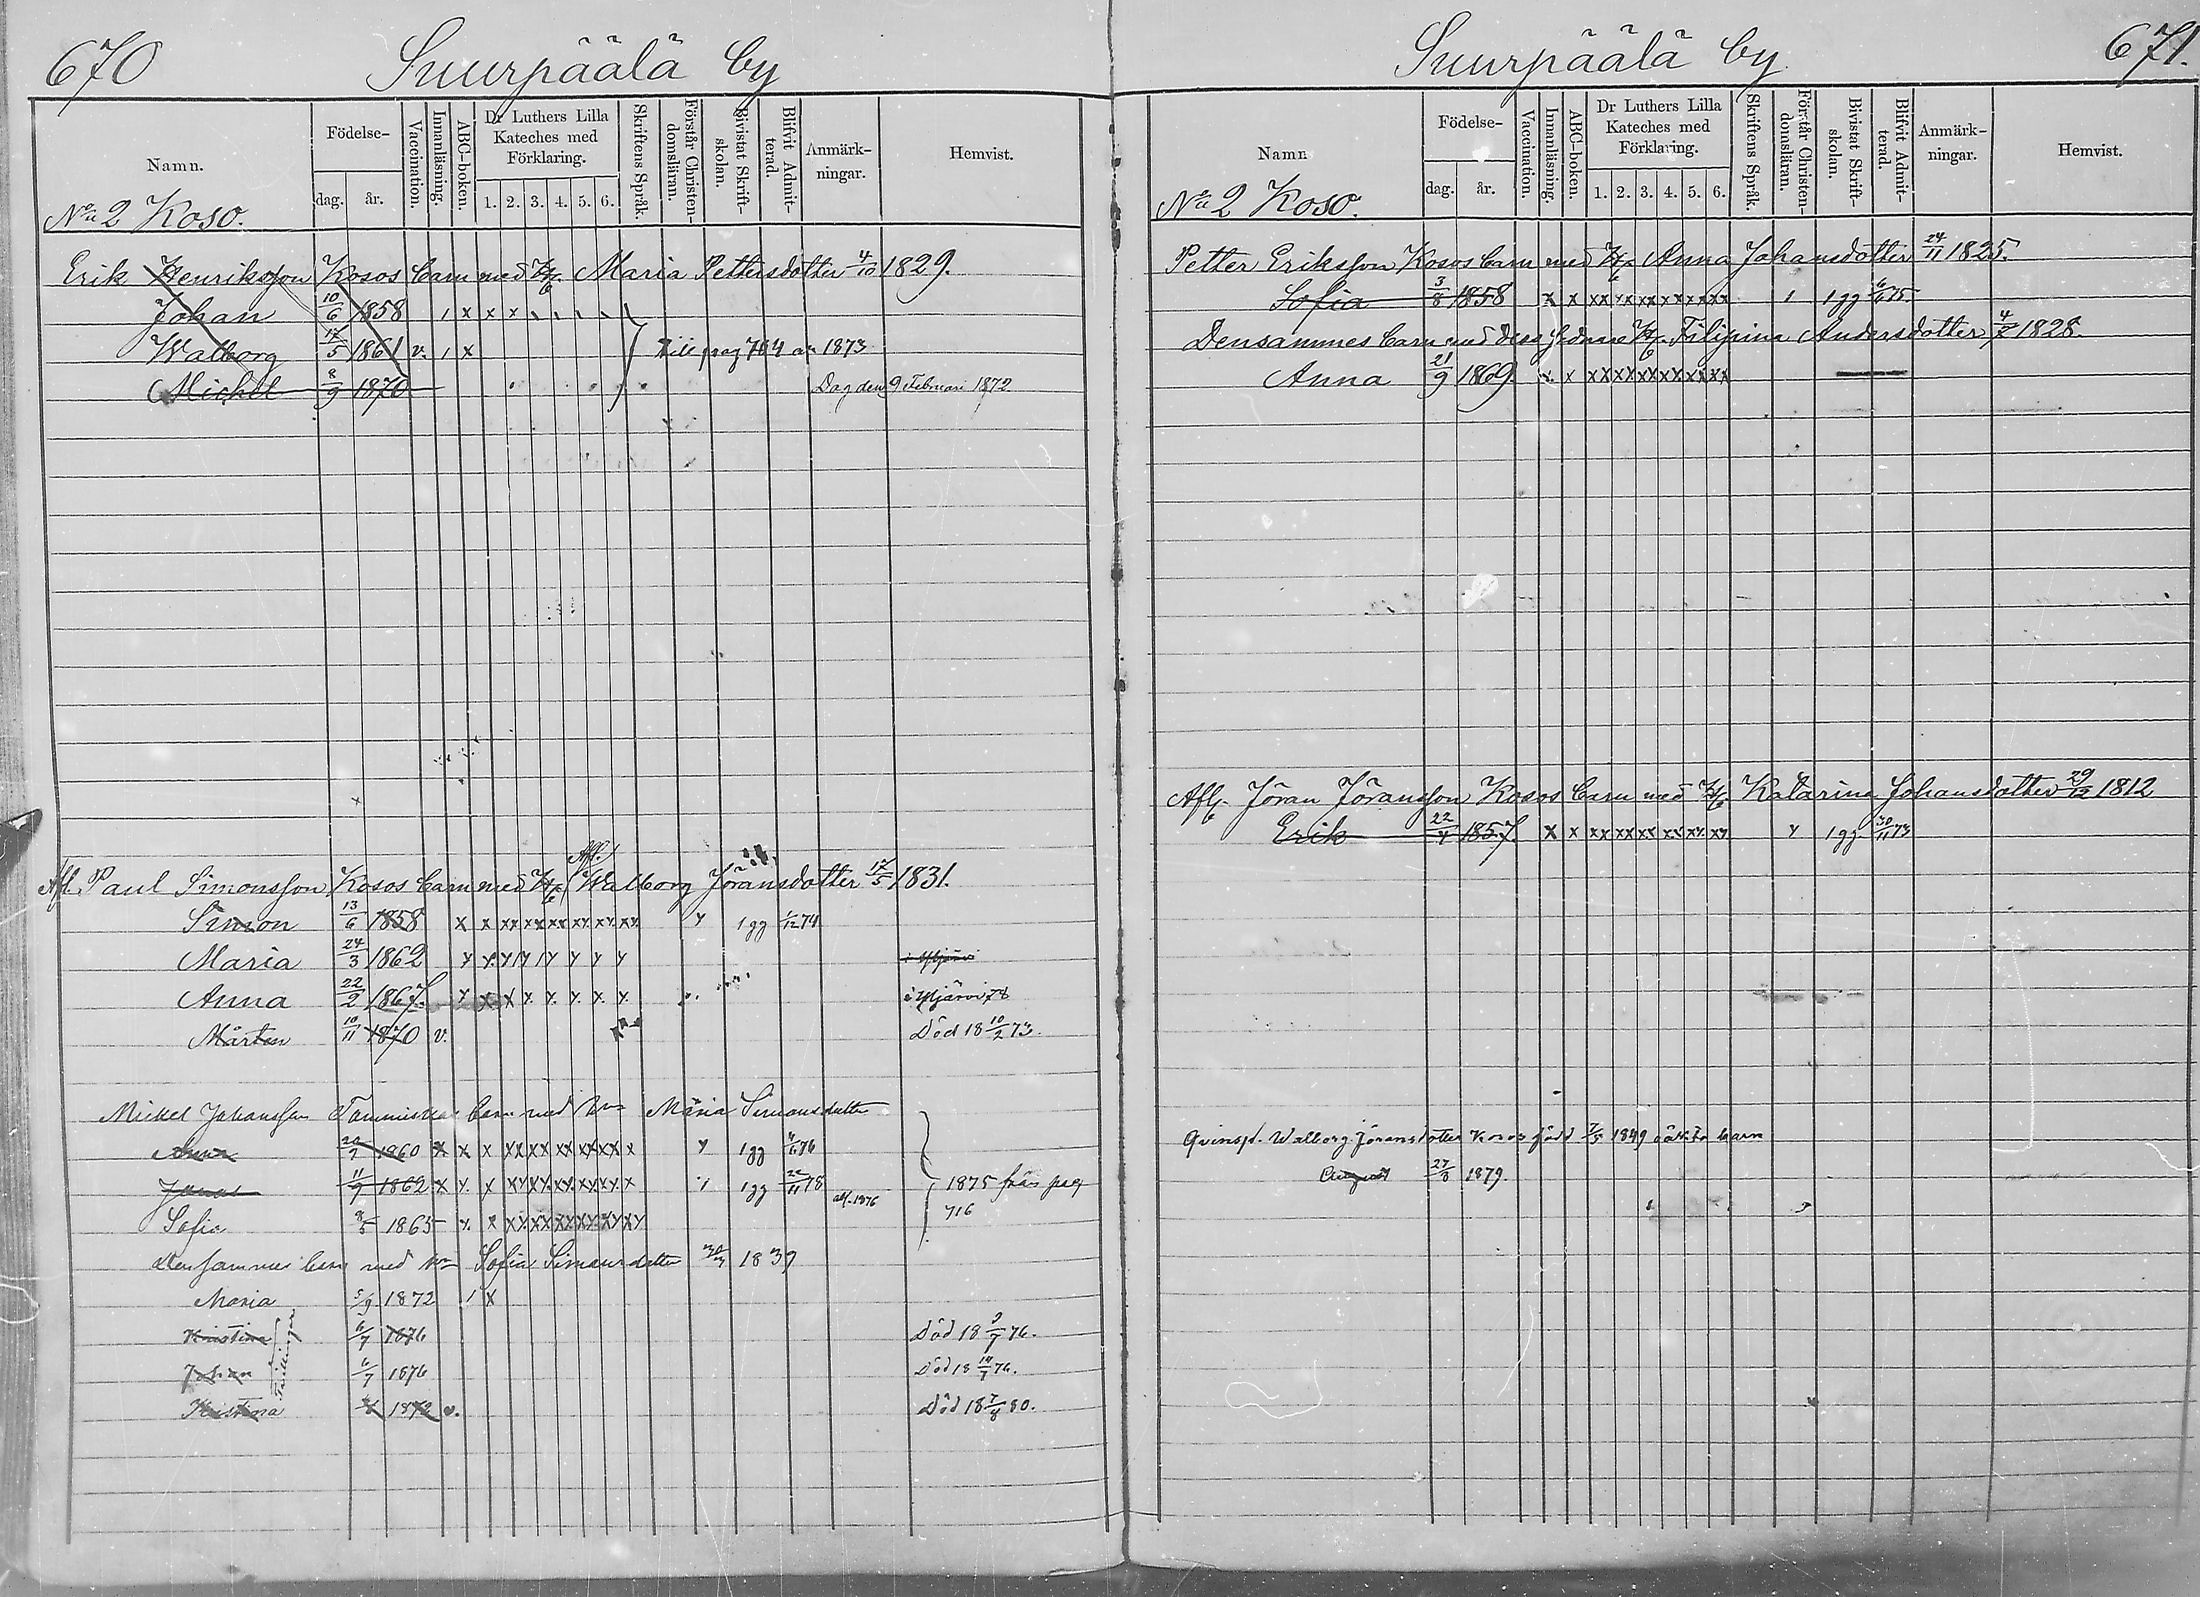 670 Suurpäälä by
Namn. Födelse- dag. år. Vaccination. Innanläsning. ABC-boken. Dr Luthers Lilla Kateches med Förklaring. 1. 2. 3. 4. 5. 6. Skriftens Språk. Förstår Christendomsläran. Bivistat Skriftskolan. Blifvit Admitterad. Anmärkningar. Hemvist.
No 2 Koso.
Erik Henriksson Kosos barn med Maria Pettersdotter 4/10 1829.
Johan 10/6 1858 x x x
Walborg 12/5 1861 v. x Till pag 704 1873
Michel 8/9 1870 den 9 Februari 1872
Afl. Paul Simonsson Kosos barn med Afl. Walborg Jöransdotter 12/5 1831.
Simon 13/6 1858 x x xx xx xx xx xx xx y 1 gg 1/12 74
Maria 24/3 1862
Anna 22/2 1867
Mårten 10/11 1870 v. Död 18 10/2 73.
Mickel Johansson barn med Maria Simonsdotter
1860 x x x y 1 gg 4/6 76
11/9 1862 x x x 1 gg 78 1876 1875 från pag
Sofia 1865 716
Densammes barn med Sofia Simonsdotter 1839
Maria 5/9 1872 x
Kristina 6/7 1876 Död 18 76.
Johan 6/7 1876 Död 18 76.
Tvillingar
Kristina v. Död 18 80.
Suurpäälä by 671.
Namn Födelse- dag. år. Vaccination. Innanläsning. ABC-boken. Dr Luthers Lilla Kateches med Förklaring. 1. 2. 3. 4. 5. 6. Skriftens Språk. Förstår Christendomsläran. Bivistat Skriftskolan. Blifvit Admitterad. Anmärkningar. Hemvist.
No 2 Koso.
Petter Eriksson Kosos barn med Anna Johansdotter 24/11 1825.
Sofia 3/8 1858 x x xx xx xx xx xx xx 1 gg 6/6 75.
Densammes barn med dess Filipina Andersdotter 1828.
Anna 21/9 1869 x x xx xx xx xx xx xx
Afl. Jöran Jöransson Kosos barn med Katarina Johansdotter 29/12 1812
Erik 22/4 1857. x x xx xx xx xx xx xx y 1 gg 30/11 73
Qvinsp. Walborg Jöransdotter Kosos född 1849 oäkta barn
August 27/8 1879.